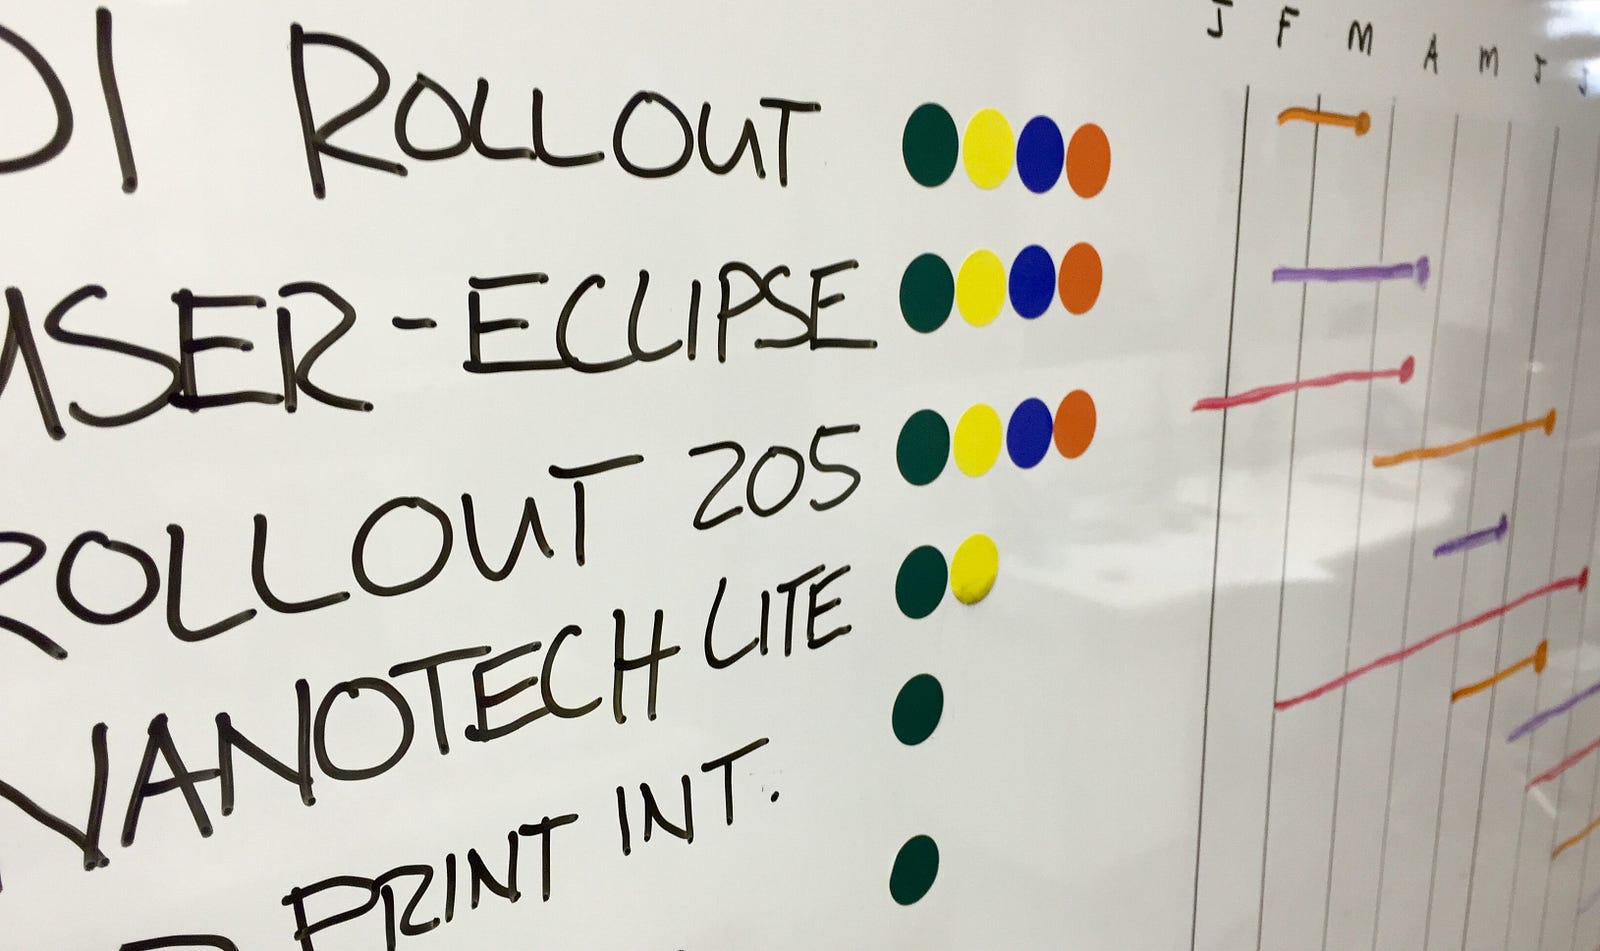 DI ROLLOUT
USER-ECLIPSE
ROLLOUT 205
NANOTECH LITE
PRINT INT.
J F M A M J J